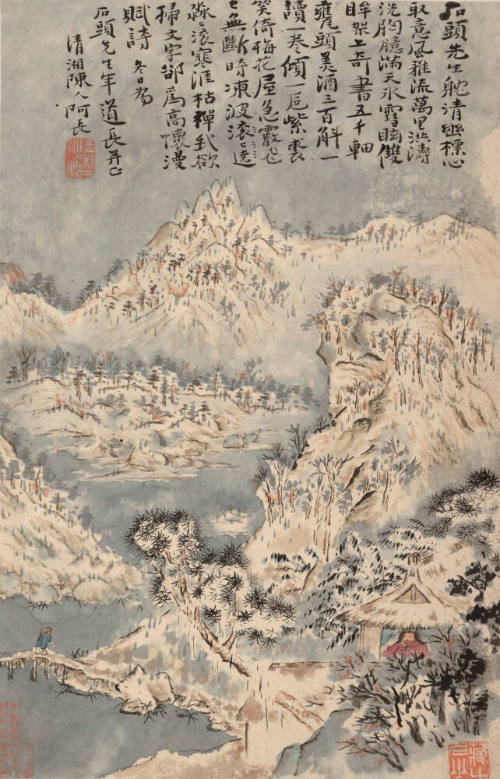 石頭先生耽清幽標心
取意風雅流萬里洪濤
洗胸臆滿天冰雪眩雙
眸架上奇書五千軸
甕頭美酒三百斛一
讀一卷傾一卮紫裘
笑倚梅花屋急霰飛
飛無斷時凍波滾滾逝
滾寒涯枯禪我欲
掃文字卻為高懷漫
賦詩 冬日為
石頭先生年道長并正
清湘陳人阿長